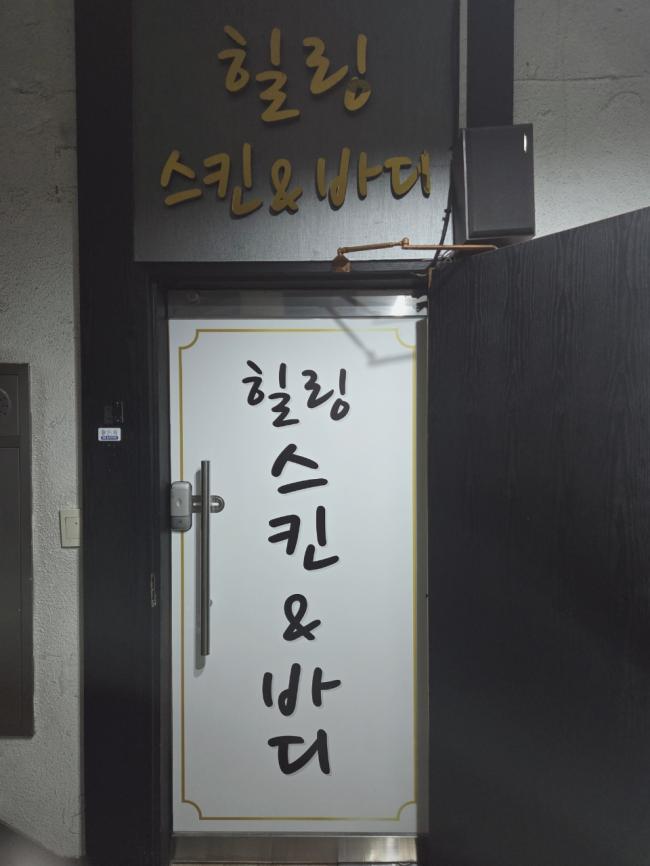 힐링
스킨&바디
힐링
스
킨
&
바
디